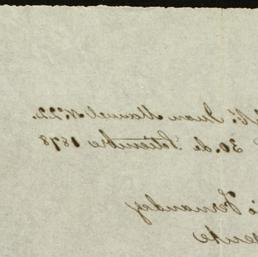 S/C. Juan Manuel Nº22.
30. de Setiembre 1878
Fernandez